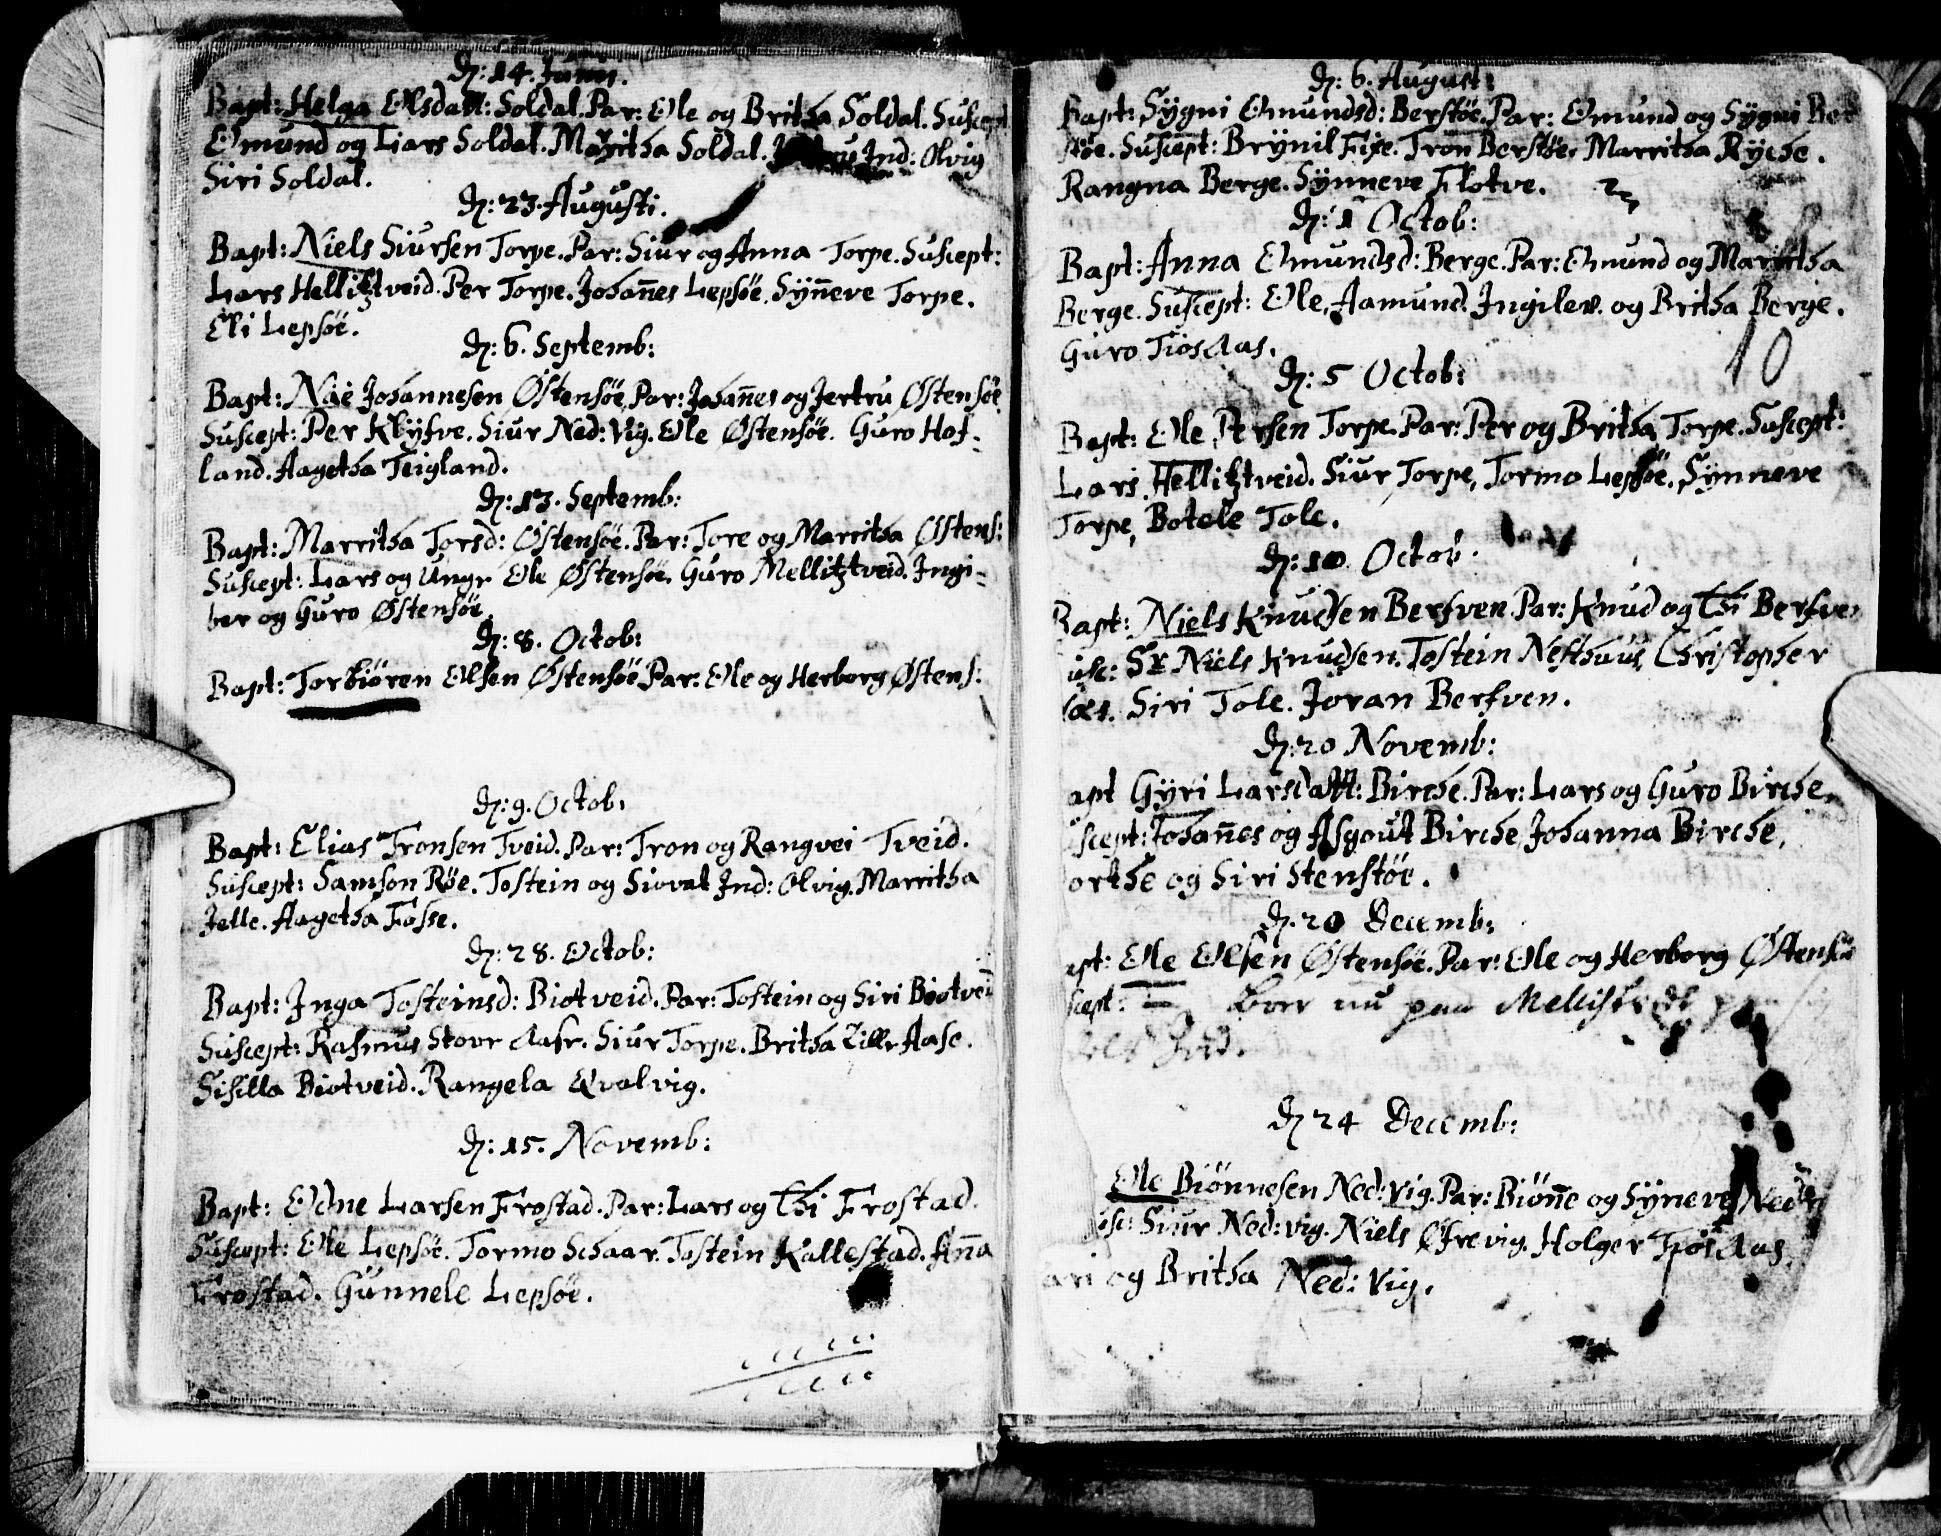 dᷠ: 14. Junij.
Bapt: Helga Olsdatt: Soldal. Par: Ole og Britha Soldal. Suscept
Omund og Lars Soldal. Maritha Soldal. Ind: Olvig
Siri Soldal.
dᷠ: 23. Augusti.
Bapt: Niels Siursen Torpe. Par: Siur og Anna Torpe. Suscept:
Lars Hellitztveid. Per Torpe. Johan̄es Lepsöe. Syn̄eve Torpe.
Eli Lepsöe.
dᷠ: 6. Septemb:
Bapt: Näe Johannesen Østensöe. Par: Johan̄es og Jertru Østensöe
Suscept: Per Klyfve. Siur Ned: Vig. Ole Østensöe. Guro Hof-
land. Aagetha Teigland.
dᷠ: 13. Septemb:
Bapt: Marritha Torsd: Østensöe. Par: Tore og Marritha Østens:
Suscept: Lars og Ungr Ole Østensöe. Guro Mellitztveid. Ingi-
ber og Guro Østensöe.
dᷠ: 8. Octob:
Bapt: Torbiören Olsen Østensöe. Par: Ole og Herborg Østens:
dᷠ: 9. Octob:
Bapt: Elias Tronsen Tveid. Par: Tron og Rangvei Tveid.
Suscept: Samson Röe. Tostein og Siovat Ind: Olvig. Marritha
Jelle. Aagetha Fosse.
dᷠ: 28. Octob:
Bapt: Inga Tosteinsd: Biotveid. Par: Tostein og Siri Biotveid
Suscept: Rasmus Stoor Aasr. Siur Torpe. Britha Lille Aase.
Sisilla Biotveid. Rangela Qvalvig.
dᷠ: 15. Novemb:
Bapt: Odne Larsen Frostad. Par: Lars og Thi Frostad.
Suscept: Ole Lepsöe. Tormo Schaar. Tostein Kallestad. An̄a
Frostad. Gunnele Lepsöe.
dᷠ: 6. August:
Bapt: Sygni Omundsd: Berstöe. Par: Omund og Sygni Ber
stöe. Suscept: Brynil Fixe. Tron Berstöe. Marritha Ryche.
Rangna Berge. Synneve Flotve.
dᷠ: 1 Octob:
Bapt: Anna Omundsd: Berge. Par: Omund og Marritha
Berge. Suscept: Ole, Aamund. Ingilev. og Britha Berge.
Guro Tiosaas.
10
dᷠ: 5 Octob:
Bapt: Ole Persen Torpe. Par: Per og Britha Torpe. Suscept:
Lars Hellitztveid. Siur Torpe, Tormo Lepsöe. Synneve
Torpe, Botole Tole.
dᷠ: 10. Octob:
Bapt: Niels Knudsen Berfven. Par: Knud og Thi Berfve
usc: Sr Niels Knudsen. Tostein Nesthuus Christopher
Siri Tole. Jöran Berfven.
dᷠ: 20 Novemb:
apt Gyri Larsdatt: Birche. Par: Lars og Guro Birche.
scept: Johan̄es og Asgout Birche Johanna Birche.
orthe og Siri Stenstöe.
dᷠ. 20 Decemb:
apt: Ole Olsen Østensöe. Par: Ole og Herborg Østensöe
scept: Boer nu paa
dᷠ 24 Decemb:
Ole Biönnesen Ned: Vig. Par: Biön̄e og Syneve Ned:
usc: Siur Ned: vig. Niels Øfrevig. Holger Tiosaas.
ari og Britha Ned: Vig.